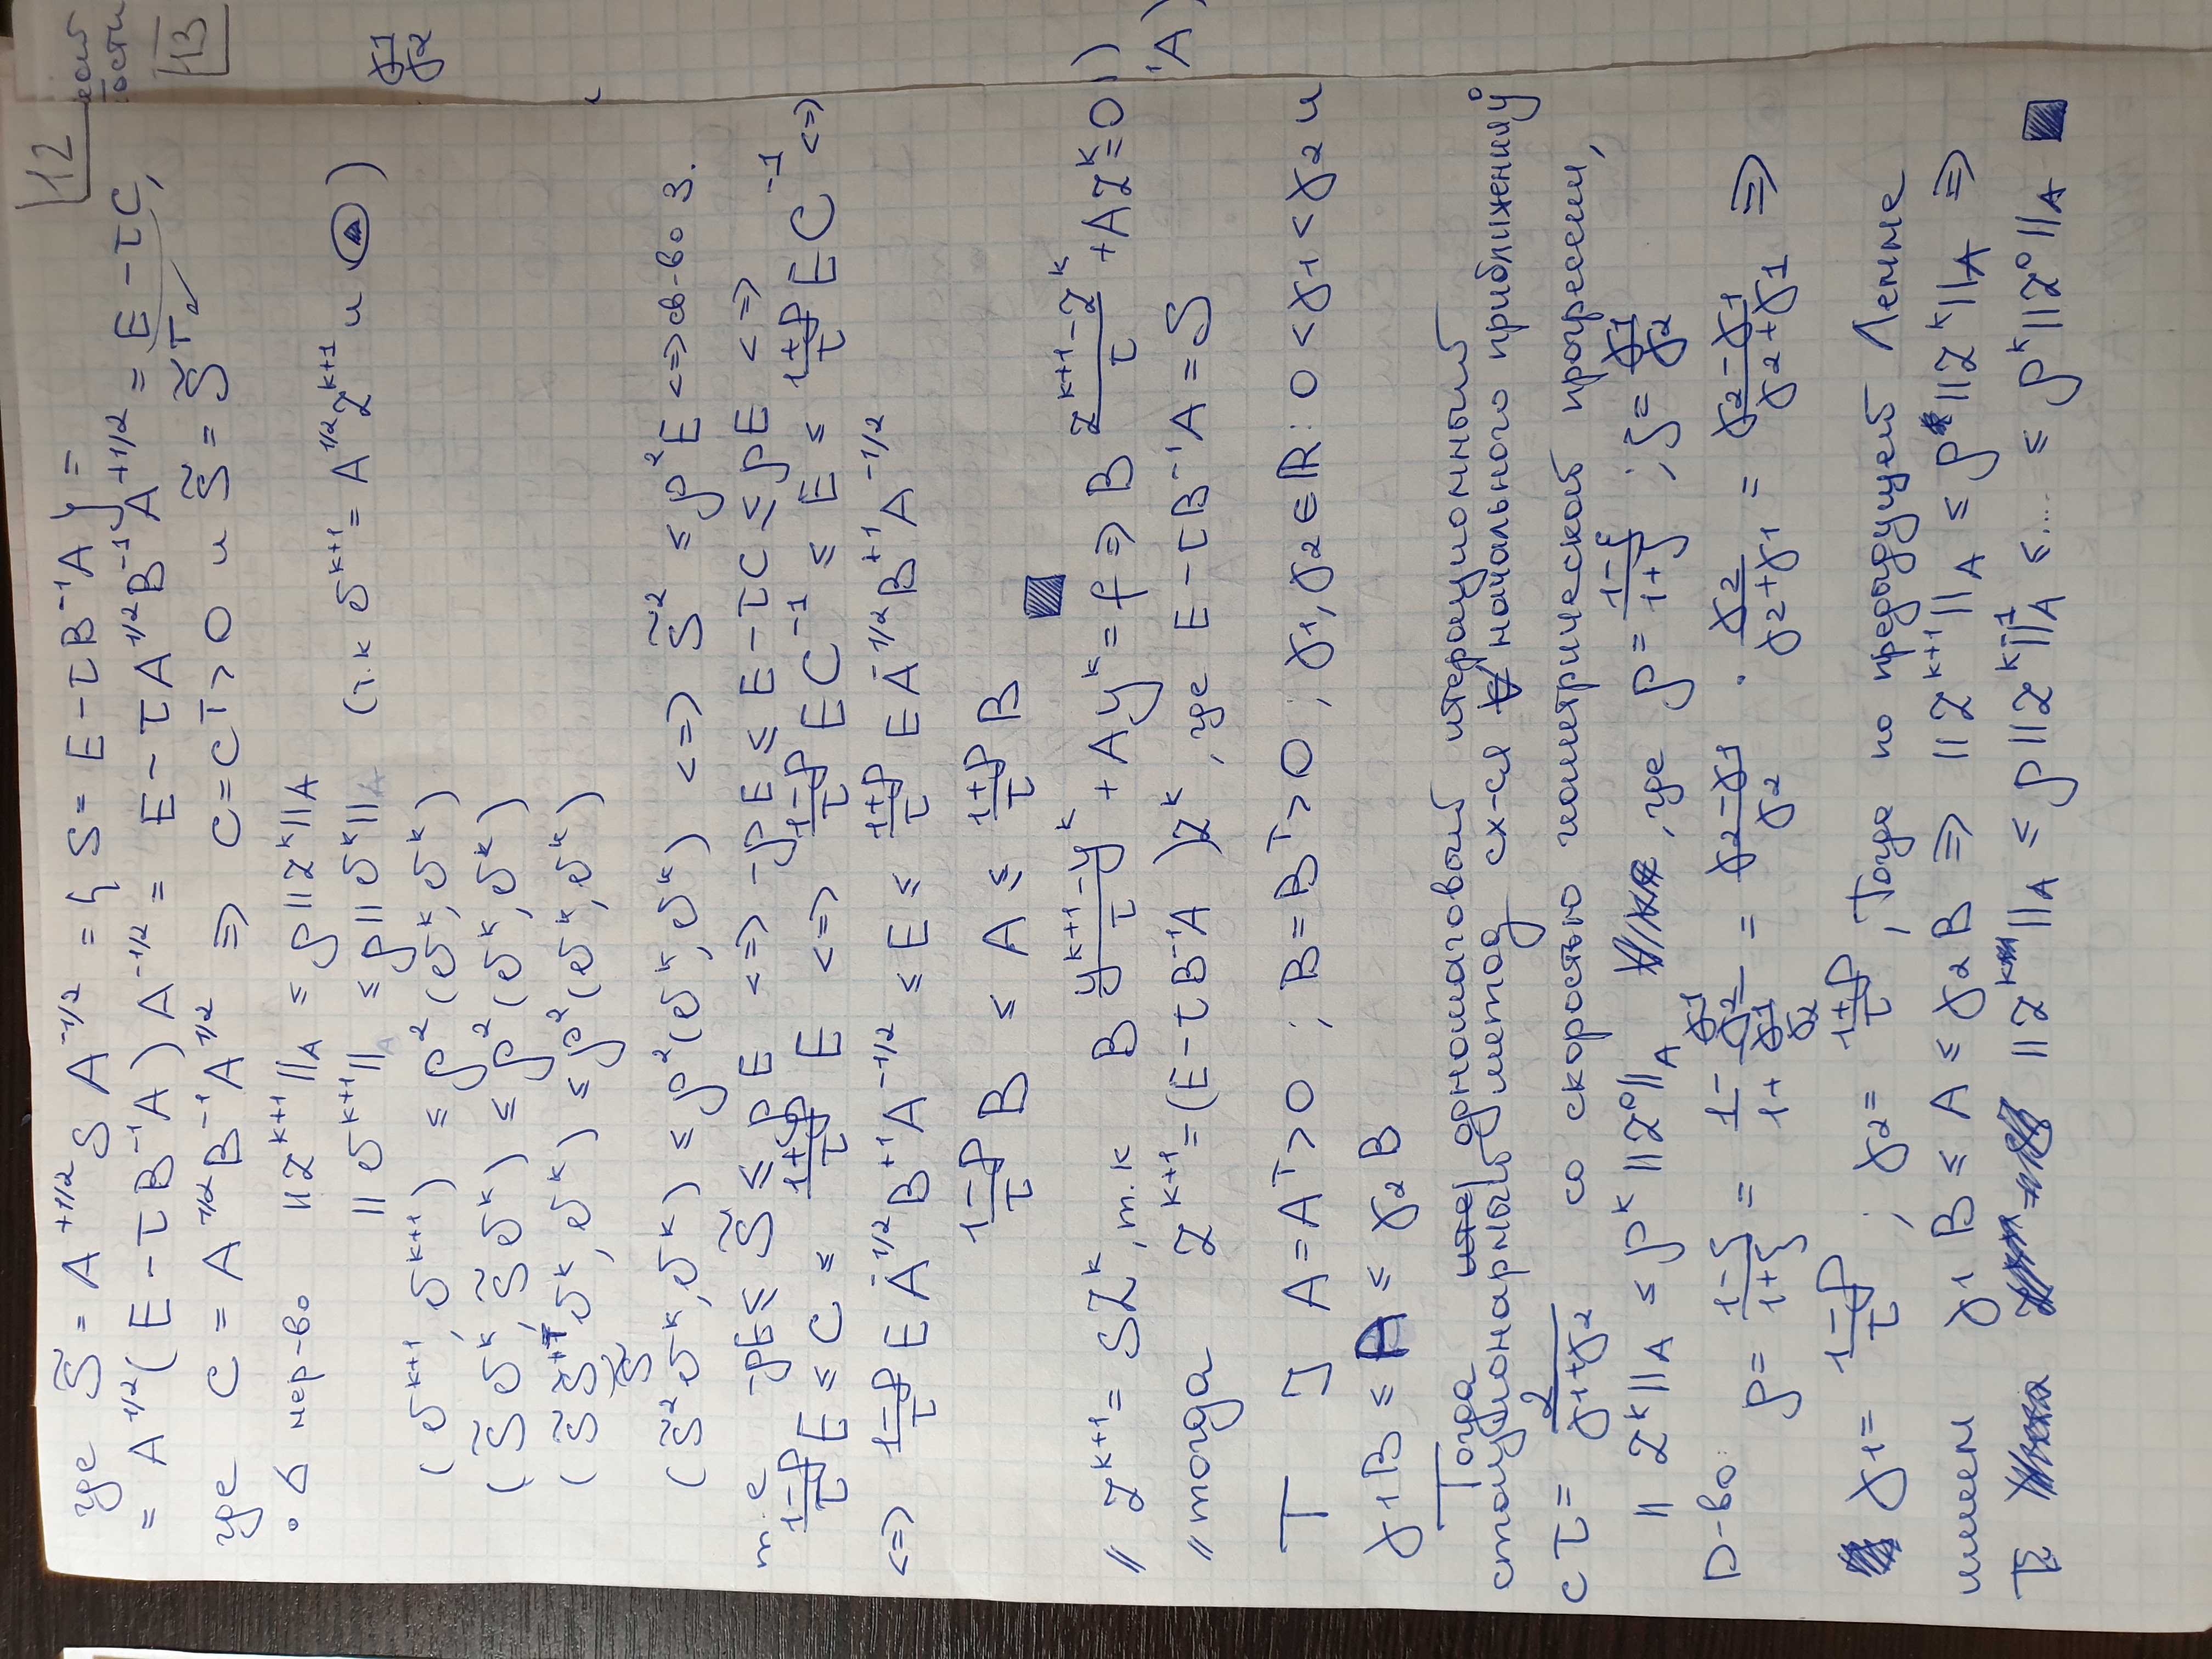 12
где S̃ = A^{+1/2} S A^{-1/2} = { S = E - τB^{-1}A } =
= A^{1/2}(E - τB^{-1}A)A^{-1/2} = E - τA^{1/2}B^{-1}A^{+1/2} = E - τC,
где C = A^{1/2}B^{-1}A^{1/2} ⇒ C = C^T > 0 и S̃ = S̃^T
• В нер-во ||z^{k+1}||_A ≤ ρ||z^k||_A (т.к υ^{k+1} = A^{1/2}z^{k+1} и
||υ^{k+1}|| ≤ ρ||υ^k||
(υ^{k+1}, υ^{k+1}) ≤ ρ²(υ^k, υ^k)
(S̃υ^k, S̃υ^k) ≤ ρ²(υ^k, υ^k)
(S̃ S̃^T υ^k, υ^k) ≤ ρ²(υ^k, υ^k)
S̃
(S̃²υ^k, υ^k) ≤ ρ²(υ^k, υ^k) <=> S̃² ≤ ρ²E <=> св-во 3.
т.е -ρE ≤ S̃ ≤ ρE <=> -ρE ≤ E - τC ≤ ρE <=>
\frac{1-ρ}{τ} E ≤ C ≤ \frac{1+ρ}{τ} E <=> \frac{1-ρ}{τ} EC^{-1} ≤ E ≤ \frac{1+ρ}{τ} EC^{-1} <=>
<=> \frac{1-ρ}{τ} EA^{-1/2}B^{+1}A^{-1/2} ≤ E ≤ \frac{1+ρ}{τ} EA^{-1/2}B^{+1}A^{-1/2}
\frac{1-ρ}{τ} B ≤ A ≤ \frac{1+ρ}{τ} B ■
// z^{k+1} = Sz^k, т.к B \frac{y^{k+1}-y^k}{τ} + Ay^k = f ⇒ B \frac{z^{k+1}-z^k}{τ} + Az^k = 0)
// тогда z^{k+1} = (E - τB^{-1}A)z^k, где E - τB^{-1}A = S
T ] A = A^T > 0 ; B = B^T > 0 ; γ1, γ2 ∈ ℝ: 0 < γ1 < γ2 и
γ1B ≤ A ≤ γ2B
Тогда одношаговый итерационный
стационарный метод сх-ся начального приближений
с τ = \frac{2}{γ1+γ2} со скоростью геометрической прогрессии,
||z^k||_A ≤ ρ^k ||z^0||_A , где ρ = \frac{1-ξ}{1+ξ} ; ξ = \frac{γ1}{γ2}
D-во: ρ = \frac{1-ξ}{1+ξ} = \frac{1-\frac{γ1}{γ2}}{1+\frac{γ1}{γ2}} = \frac{γ2-γ1}{γ2} · \frac{γ2}{γ2+γ1} = \frac{γ2-γ1}{γ2+γ1} ⇒
γ1 = \frac{1-ρ}{τ} ; γ2 = \frac{1+ρ}{τ} , Тогда по предыдущей Лемме
имеем γ1B ≤ A ≤ γ2B ⇒ ||z^{k+1}||_A ≤ ρ||z^k||_A ⇒
||z^k||_A ≤ ρ||z^{k-1}||_A ≤ .... ≤ ρ^k||z^0||_A ■
13
\frac{γ1}{γ2}